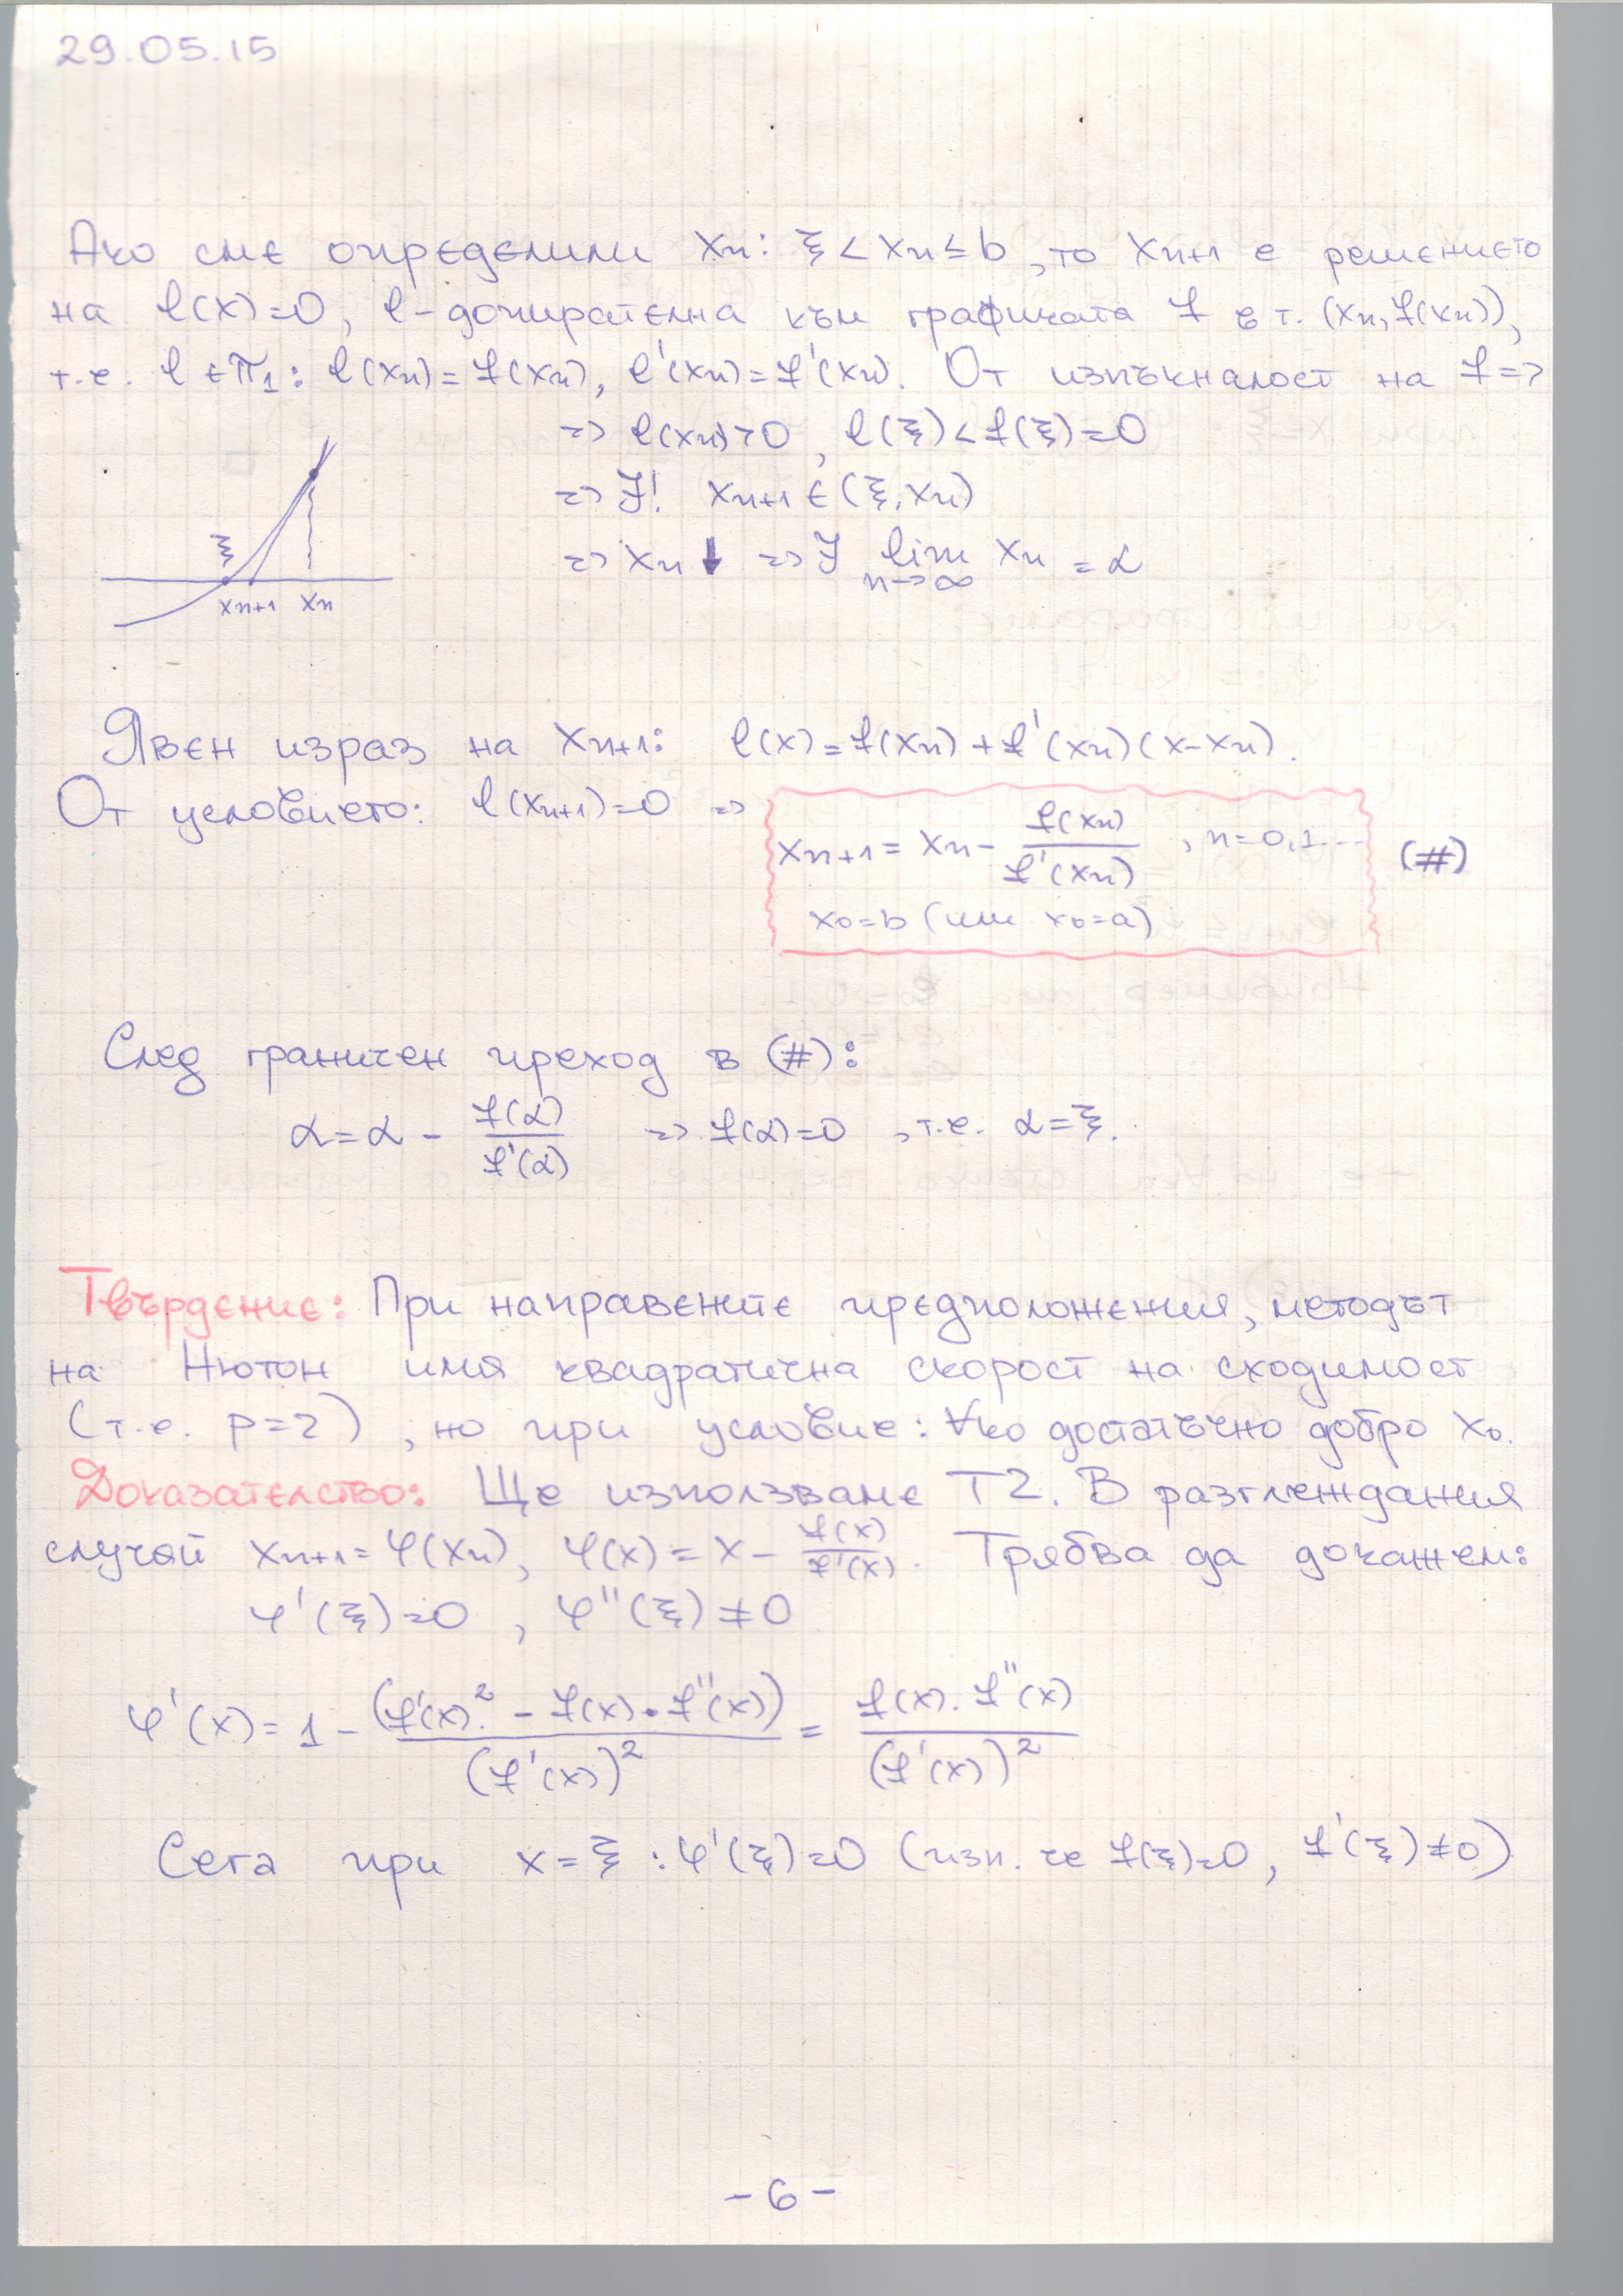 29.05.15
Ако сме определили xn: ξ < xn ≤ b, то xn+1 е решението
на l(x)=0, l-допирателна към графиката f в т. (xn, f(xn)),
т.е. l ∈ π1: l(xn) = f(xn), l'(xn) = f'(xn). От изпъкналост на f =>
=> l(xn) > 0, l(ξ) < f(ξ) = 0
=> ∃! xn+1 ∈ (ξ, xn)
=> xn ↓ => ∃ lim xn = α
n->∞
ξ
xn+1 xn
Явен израз на xn+1: l(x) = f(xn) + f'(xn)(x-xn).
От условието: l(xn+1)=0 =>
xn+1 = xn - f(xn)/f'(xn), n=0,1... (#)
x0=b (или x0=a)
След граничен преход в (#):
α = α - f(α)/f'(α) => f(α)=0, т.е. α=ξ.
Твърдение: При направените предположения, методът
на Нютон имя квадратична скорост на сходимост
(т.е. p=2), но при условие: ∀ко достатъчно добро x0.
Доказателство: Ще използваме Т2. В разглеждания
случай xn+1 = φ(xn), φ(x) = x - f(x)/f'(x). Трябва да докажем:
φ'(ξ)=0, φ''(ξ) ≠ 0
φ'(x) = 1 - (f'(x)² - f(x).f''(x))/(f'(x))² = f(x).f''(x)/(f'(x))²
Сега при x=ξ: φ'(ξ)=0 (изп. че f(ξ)=0, f'(ξ)≠0)
-6-